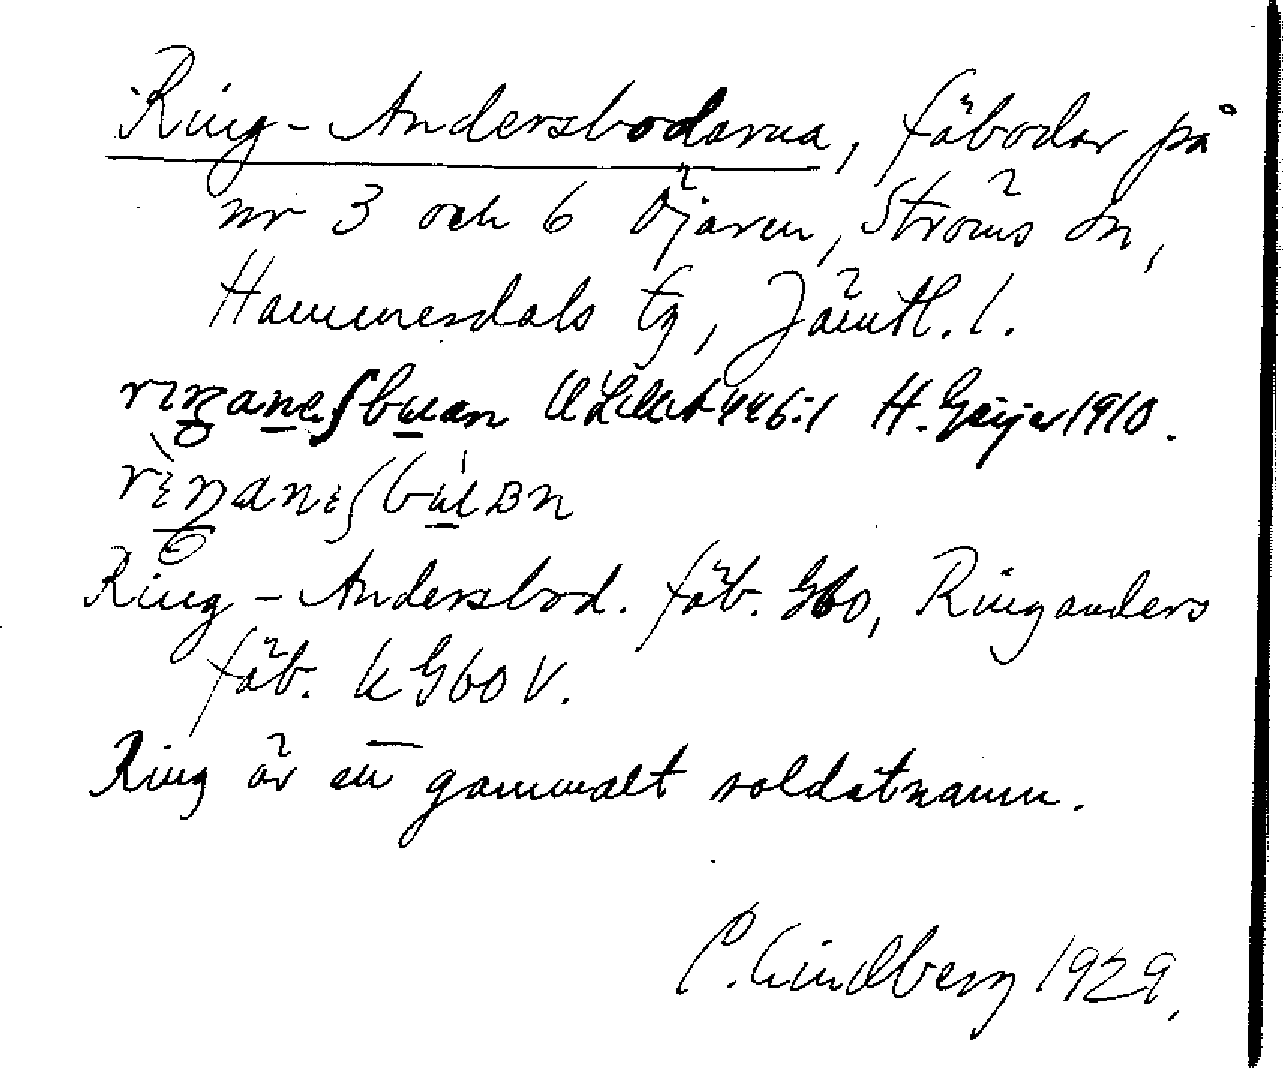 Ring-Andersbodarna, fäbodar på
nr 3 och 6 Öjaren, Ströms sn,
Hammerdals tg, Jämtl. l.
H. Geijer 1910.
Ring-Andersbod. fäb. Gbo, Ringanders
fäb. k Gbo V.
Ring är ett gammalt soldatnamn.
C. Lindberg 1929.